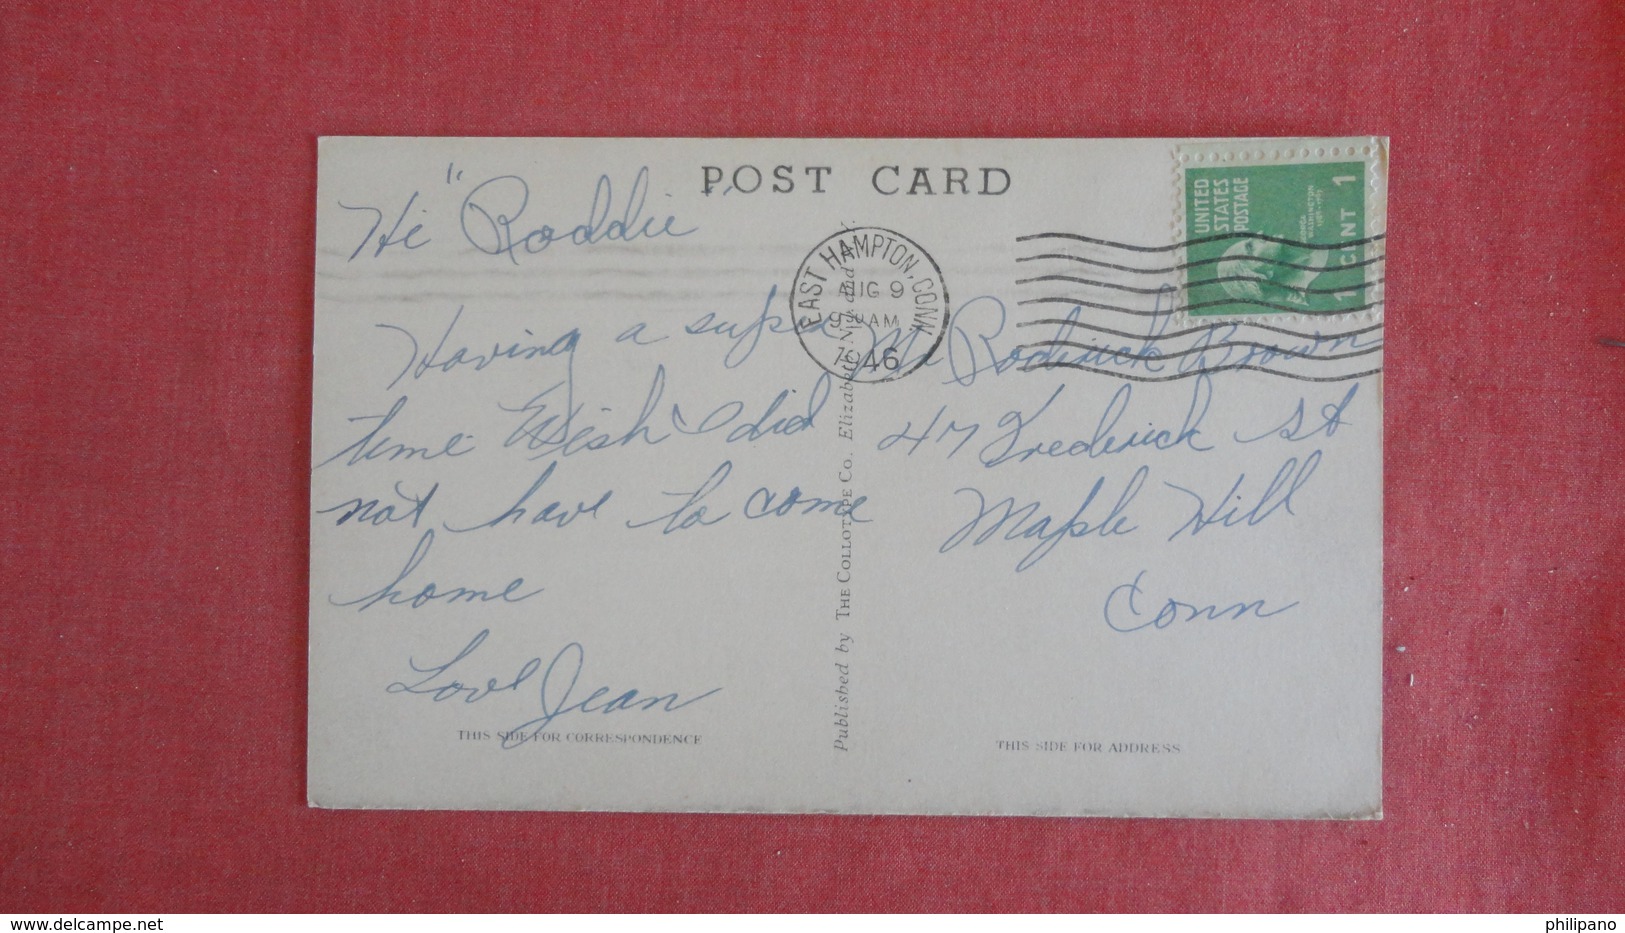 POST CARD
Hi "Roddie"
Having a super
time. Wish I did
not have to come
home
Love Jean
THIS SIDE FOR CORRESPONDENCE
Published by THE COLLOTYPE CO. Elizabeth, N.J. and N.Y.
EAST HAMPTON, CONN.
AUG 9
9 AM
1946
UNITED
STATES
POSTAGE
GEORGE
WASHINGTON
1 CENT 1
Mr Roderick Brown
47 Frederick St
Maple Hill
Conn
THIS SIDE FOR ADDRESS
www.delcampe.net
philipano